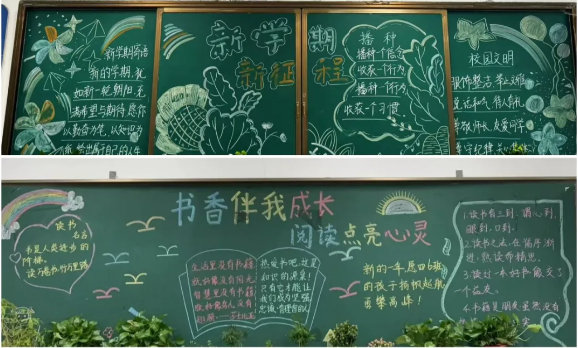 新学期
新征程
新学期寄语
新的学期,犹
如新一轮朝阳,充
满希望与期待,愿你
以勤奋为笔,以知识为
播种
播种一个信念
收获一个行为
播种一个行为
收获一个习惯
校园文明
服饰整洁,举止文雅
尊敬师长,友爱同学
书香伴我成长
阅读点亮心灵
读书
名言
书是人类进步的
阶梯。
读万卷书行万里路
生活里没有书籍
就好像没有阳光
智慧里没有书籍
就好像鸟儿没有
翅膀
热爱书吧,这是
知识的源泉!
只有它才能让
我们成为坚强
忠诚、有理智的人
新的一年,愿四6班
的孩子扬帆起航
勇攀高峰!
1.读书有三到,谓心到,
眼到,口到。
2.读书之法,在循序渐
进,熟读而精思。
3.读过一本好书,像交了
一个益友。
4.书籍是朋友,虽然没有